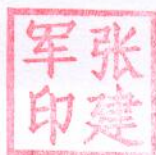 张建
军印